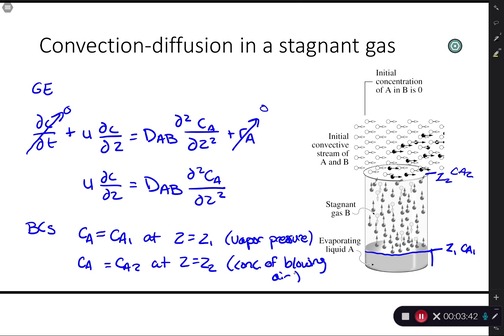 Convection-diffusion in a stagnant gas
GE
∂c/∂t 0 + u ∂c/∂z = D_AB ∂²C_A/∂z² + r_A 0
u ∂c/∂z = D_AB ∂²C_A/∂z²
BCs C_A = C_A1 at z = z_1 (vapor pressure)
C_A = C_A2 at z = z_2 (conc. of blowing
air)
Initial
concentration
of A in B is 0
Initial
convective
stream of
A and B
z_2 C_A2
Stagnant
gas B
Evaporating
liquid A
z_1 C_A1
00:03:42